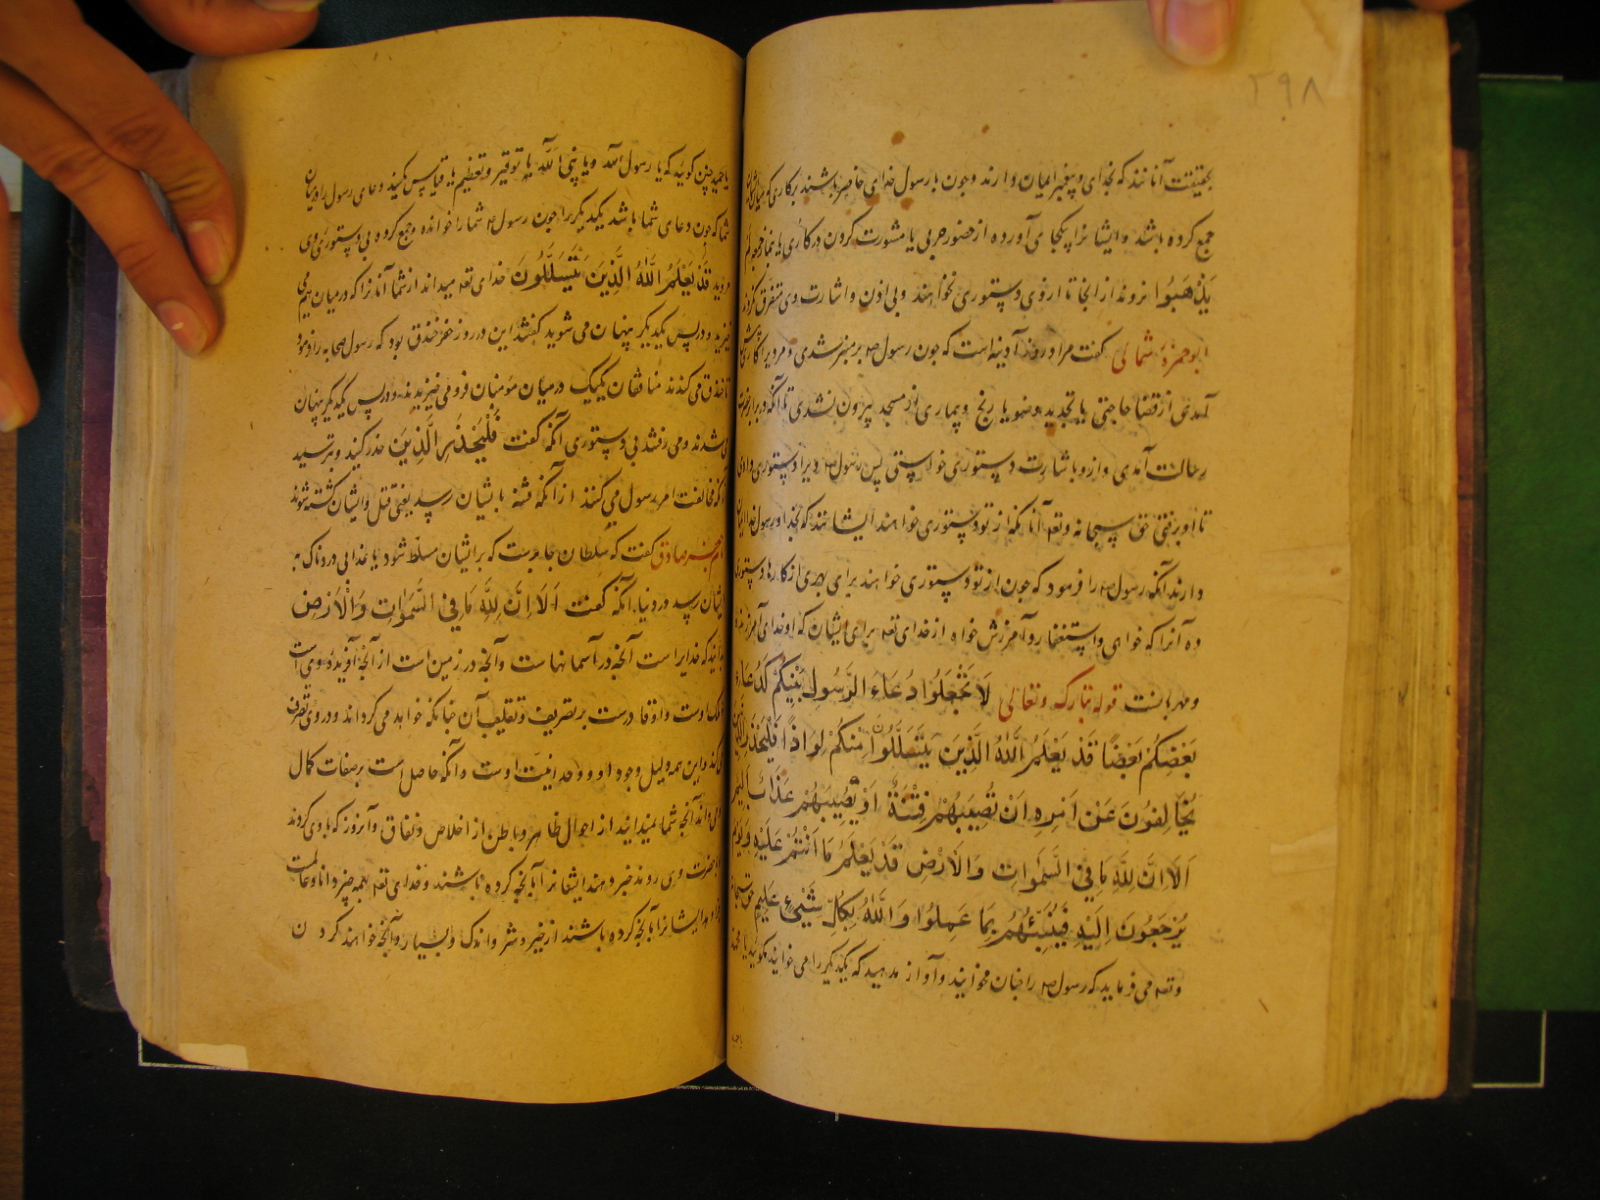 ۲۹۸
بحقیقت آنانند که بخدای و پیغمبر ایمان دارند و چون با رسول خدای حاضر باشند بکاری که
جمع کرده باشد و ایشانرا بیکجای آورده از حضور حربی یا مشورت کردن در کاری یا نماز جمعه لم
یذهبوا نروند از آنجا تا از وی دستوری نخواهند و بی اذن و اشارت وی متفرق نگردند
ابوحمزه ثمالی گفت مراد روز آدینه است که چون رسول صه بر منبر شدی و مردیرا کاری
آمدی از قضا حاجتی یا تجدید وضو یا رنج و بیماری از مسجد بیرون نشدی تا آنکه در برابر حضرت
رسالت آمدی و ازو باشارت دستوری خواستی پس رسول صه ویرا دستوری دادی
تا او برفتی حق سبحانه وتعه آنانکه از تو دستوری خواهند ایشانند که بخدا و رسول خدا ایمان
دارند آنکه رسول صه را فرمود که چون از تو دستوری خواهند برای بهری از کارها دستوری
ده آنرا که خواهی و استغفار و آمرزش خواه از خدای تعه برای ایشان که او خدای آمرزنده
و مهربانست قوله تبارک وتعالی لَا تَجْعَلُوا دُعَاءَ الرَّسُولِ بَيْنَكُمْ كَدُعَاءِ
بَعْضِكُمْ بَعْضًا قَدْ يَعْلَمُ اللَّهُ الَّذِينَ يَتَسَلَّلُونَ مِنْكُمْ لِوَاذًا فَلْيَحْذَرِ الَّذِينَ
يُخَالِفُونَ عَنْ أَمْرِهِ أَنْ تُصِيبَهُمْ فِتْنَةٌ أَوْ يُصِيبَهُمْ عَذَابٌ أَلِيمٌ
أَلَا إِنَّ لِلَّهِ مَا فِي السَّمَوَاتِ وَالْأَرْضِ قَدْ يَعْلَمُ مَا أَنْتُمْ عَلَيْهِ وَيَوْمَ
يُرْجَعُونَ إِلَيْهِ فَيُنَبِّئُهُمْ بِمَا عَمِلُوا وَاللَّهُ بِكُلِّ شَيْءٍ عَلِيمٌ حق سبحانه
وتعه می فرماید که رسول صه را چنان مخوانید و آواز مدهید که یکدیکر را می خوانید مکوئید یا محمد
یا چنین کوئید که یا رسول الله ویا نبی الله با توقیر و تعظیم یا قیاس مکنید دعای رسول را در میان
شما که چون دعای شما باشد یکدیکر را چون رسول صه شما را خوانده و جمع کرده بی دستوری وی
مروید قَدْ يَعْلَمُ اللَّهُ الَّذِينَ يَتَسَلَّلُونَ خدای تعه میداند از شما آنانرا که در میان هم می
خیزید و در پس یکدیکر پنهان می شوید گفتند این در روز حفر خندق بود که رسول صحابه را فرمود
تا خندق می کندند منافقان یکیک در میان مؤمنان فرو می خیزیدند و در پس یکدیکر پنهان
می شدند و می رفتند بی دستوری آنکه گفت فَلْيَحْذَرِ الَّذِينَ حذر کنید و بترسید
آنکه مخالفت امر رسول می کنند از آنکه فتنه بایشان رسد یعنی قتل و ایشان کشته شوند
جعفر صادق گفت که سلطان جابرست که بر ایشان مسلّط شود یا عذابی دردناک به
ایشان رسد در دنیا آنکه گفت أَلَا إِنَّ لِلَّهِ مَا فِي السَّمَوَاتِ وَالْأَرْضِ
بدانید که خدایراست آنچه در آسمانهاست و آنچه در زمین است از آنچه آفریده وی است
ملک اوست و او قادرست بر تصریف و تقلیب آن چنانکه خواهد می کرداند و در وی تصرف
می کند و این همه دلیل وجود او و وحدانیت اوست و آنکه حاصل است بر صفات کمال
و می داند آنچه شما میدانید از احوال ظاهر و باطن از اخلاص و نفاق و آنروز که با وی کردند
با حضرت وی روند خبر دهند ایشانرا بآنچه کرده باشند و خدای تعه بهمه چیز دانا و عالمست
ایشانرا بآنچه کرده باشند از خیر و شر و اندک و بسیار و آنچه خواهند کرد ن